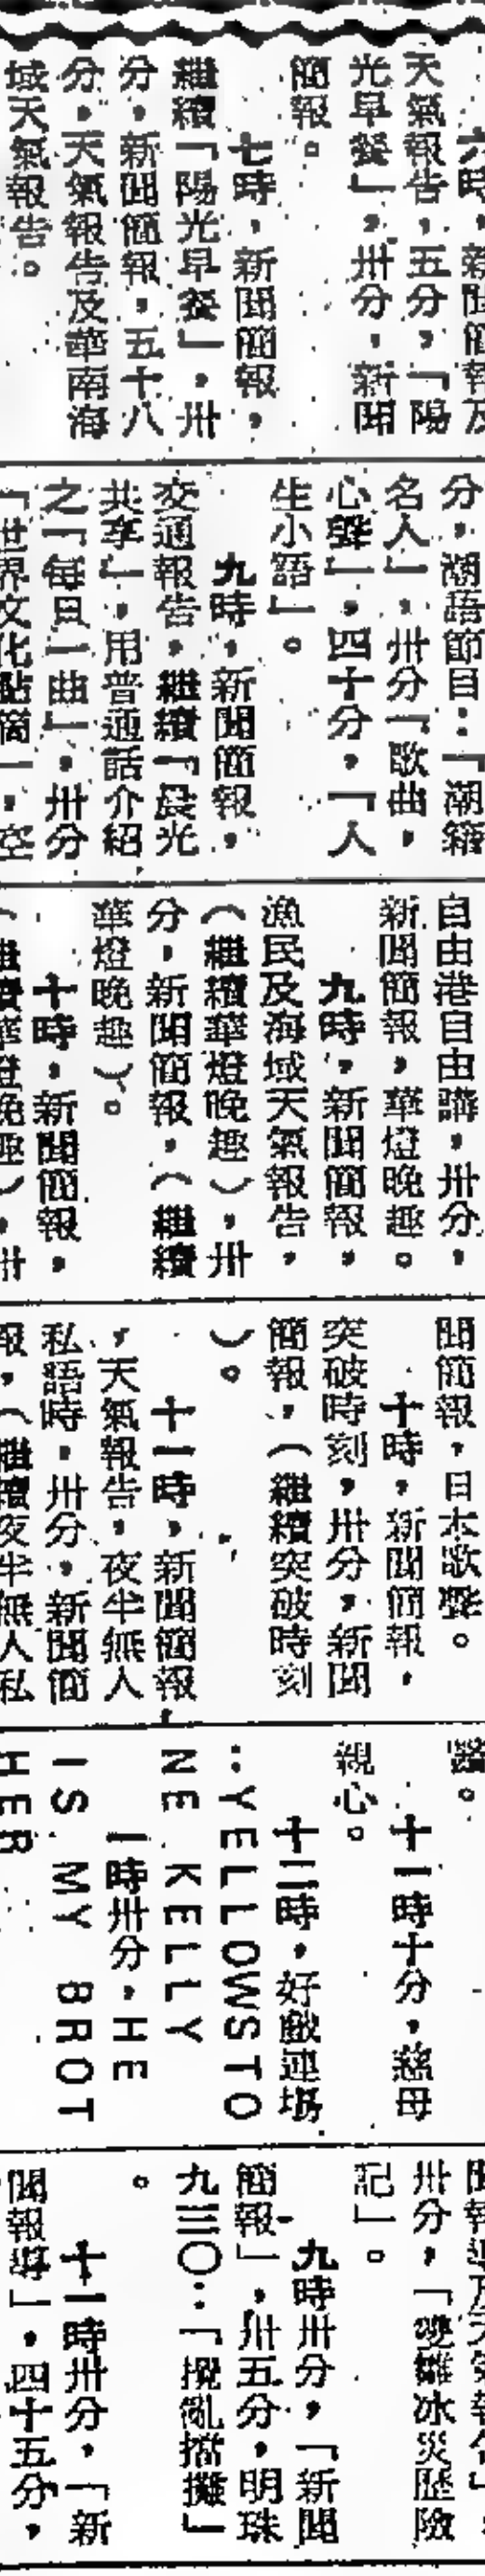 六時，新聞簡報及
天氣報告，五分，「陽
光早餐」，卅分，新聞
簡報。
七時，新聞簡報，
繼續「陽光早餐」，卅
分，新聞簡報，五十八
分，天氣報告及華南海
域天氣報告。
分，潮語節目：「潮籍
名人」，卅分「歌曲，
心聲」，四十分，「人
生小語」。
九時，新聞簡報，
交通報告，繼續「晨光
共享」，用普通話介紹
之「每日一曲」，卅分
「世界文化點滴」，空
自由港自由講，卅分，
新聞簡報，華燈晚趣。
九時，新聞簡報，
漁民及海域天氣報告，
（繼續華燈晚趣），卅
分，新聞簡報，（繼續
華燈晚趣）。
十時，新聞簡報，
（繼續華燈晚趣），卅
聞簡報，日本歌聲。
十時，新聞簡報，
突破時刻，卅分，新聞
簡報，（繼續突破時刻
）。
十一時，新聞簡報
，天氣報告，夜半無人
私語時，卅分，新聞簡
報，（繼續夜半無人私
。
十一時十分，慈母
親心。
十二時，好戲連場
：YELLOWSTO
NE KELLY
一時卅分，HE
IS MY BROT
HER
聞報導及天氣報告」，
卅分，「雙雛冰災歷險
記」。
九時卅分，「新聞
簡報」，卅五分，明珠
九三〇：「攪亂擋攤」
。
十一時卅分，「新
聞報導」，四十五分，